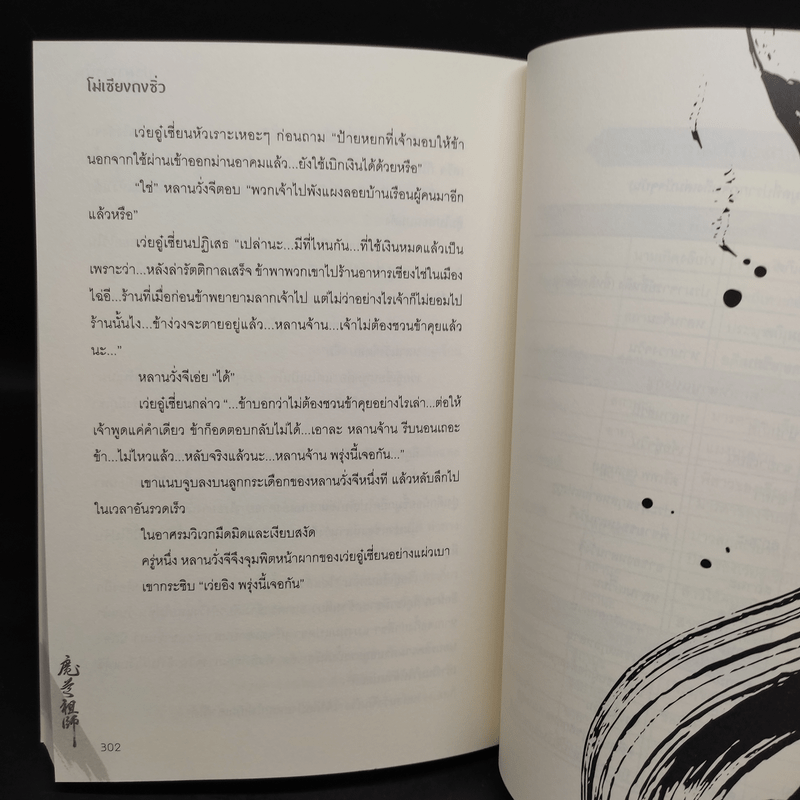 โม่เซียงถงซิ่ว
เว่ยอู๋เซี่ยนหัวเราะเหอะๆ ก่อนถาม “ป้ายหยกที่เจ้ามอบให้ข้า
นอกจากใช้ผ่านเข้าออกม่านอาคมแล้ว...ยังใช้เบิกเงินได้ด้วยหรือ”
“ใช่” หลานวั่งจีตอบ “พวกเจ้าไปพังแผงลอยบ้านเรือนผู้คนมาอีก
แล้วหรือ”
เว่ยอู๋เซี่ยนปฏิเสธ “เปล่านะ...มีที่ไหนกัน...ที่ใช้เงินหมดแล้วเป็น
เพราะว่า...หลังล่ารัตติกาลเสร็จ ข้าพาพวกเขาไปร้านอาหารเซียงไช่ในเมือง
ไฉ่อี...ร้านที่เมื่อก่อนข้าพยายามลากเจ้าไป แต่ไม่ว่าอย่างไรเจ้าก็ไม่ยอมไป
ร้านนั้นไง...ข้าง่วงจะตายอยู่แล้ว...หลานจ้าน...เจ้าไม่ต้องชวนข้าคุยแล้ว
นะ...”
หลานวั่งจีเอ่ย “ได้”
เว่ยอู๋เซี่ยนกล่าว “...ข้าบอกว่าไม่ต้องชวนข้าคุยอย่างไรเล่า...ต่อให้
เจ้าพูดแค่คำเดียว ข้าก็อดตอบกลับไม่ได้...เอาละ หลานจ้าน รีบนอนเถอะ
ข้า...ไม่ไหวแล้ว...หลับจริงแล้วนะ...หลานจ้าน พรุ่งนี้เจอกัน...”
เขาแนบจูบลงบนลูกกระเดือกของหลานวั่งจีหนึ่งที แล้วหลับลึกไป
ในเวลาอันรวดเร็ว
ในอาศรมวิเวกมืดมิดและเงียบสงัด
ครู่หนึ่ง หลานวั่งจีจึงจุมพิตหน้าผากของเว่ยอู๋เซี่ยนอย่างแผ่วเบา
เขากระซิบ “เว่ยอิง พรุ่งนี้เจอกัน”
魔道祖師
302